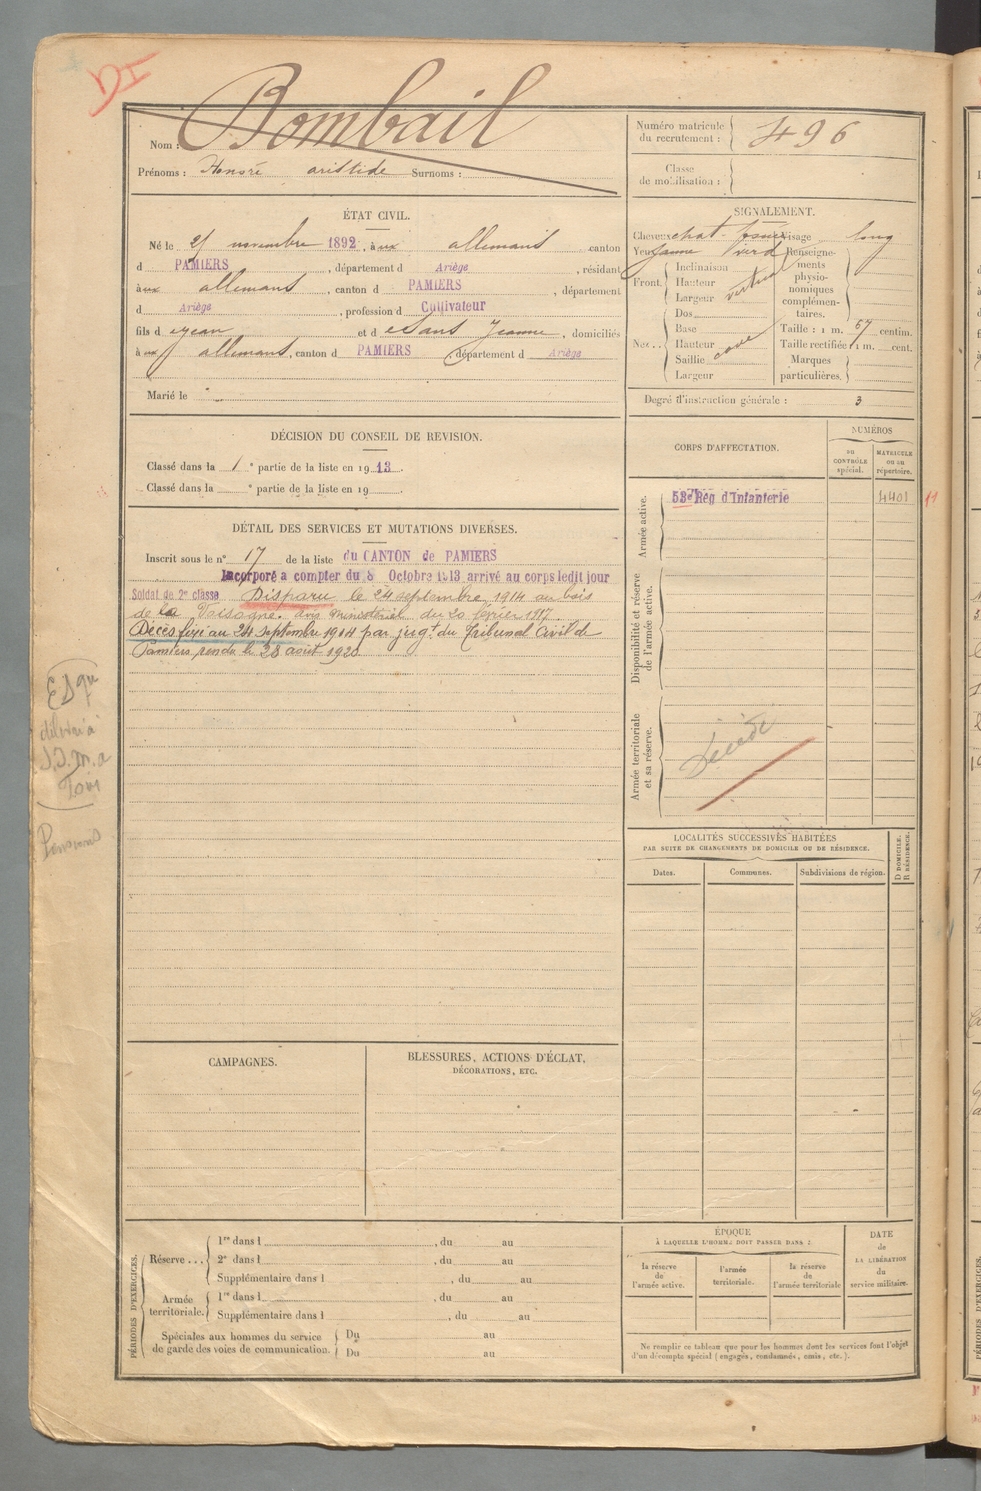 DI
Nom : Bombail
Prénoms : Honoré aristide Surnoms :
Numéro matricule du recrutement : 496
Classe de mobilisation :
ÉTAT CIVIL.
Né le novembre 1892, à ux allemans canton
d PAMIERS, département d Ariège, résidant
à ux allemans, canton d PAMIERS, département
d Ariège, profession d Cultivateur
fils d e Jean et d e Sans Jeanne, domiciliés
à ux allemans, canton d PAMIERS, département d Ariège
Marié le
SIGNALEMENT.
Cheveux chat. foncé Visage long
Yeux jaune verd
Renseignements physionomiques complémentaires.
Front. Inclinaison vertical
Hauteur
Largeur
Nez.. Dos
Base
Hauteur cave
Saillie
Largeur
Taille : 1 m. 67 centim.
Taille rectifiée 1 m. cent.
Marques particulières.
Degré d'instruction générale : 3
DÉCISION DU CONSEIL DE REVISION.
Classé dans la 1 e partie de la liste en 1913.
Classé dans la e partie de la liste en 19
CORPS D'AFFECTATION.
NUMÉROS
DU CONTRÔLE spécial.
MATRICULE OU DU répertoire.
Armée active.
53e Rég d'Infanterie 4401
Disponibilité et réserve de l'armée active.
Armée territoriale et sa réserve.
Décédé
DÉTAIL DES SERVICES ET MUTATIONS DIVERSES.
Inscrit sous le n° 17 de la liste du CANTON de PAMIERS
Incorporé a compter du 8 Octobre 1913 arrivé au corps ledit jour
Soldat de 2e classe Disparu le 24 septembre 1914 au bois
de la Voisogne. avis ministériel du 20 février 1917.
Décès fixé au 24 Septembre 1914 par jugt du Tribunal Civil de
Pamiers rendu le 28 août 1920
Pensionné
LOCALITÉS SUCCESSIVES HABITÉES
PAR SUITE DE CHANGEMENTS DE DOMICILE OU DE RÉSIDENCE.
Dates. Communes. Subdivisions de région.
D DOMICILE. R RÉSIDENCE.
CAMPAGNES.
BLESSURES, ACTIONS D'ÉCLAT,
DÉCORATIONS, ETC.
PÉRIODES D'EXERCICES.
Réserve... 1re dans l , du au
2e dans l , du au
Supplémentaire dans l , du au
Armée territoriale. 1re dans l , du au
Supplémentaire dans l , du au
Spéciales aux hommes du service de garde des voies de communication. Du au
Du au
ÉPOQUE
À LAQUELLE L'HOMME DOIT PASSER DANS :
la réserve de l'armée active.
l'armée territoriale.
la réserve de l'armée territoriale
DATE de LA LIBÉRATION du service militaire.
Ne remplir ce tableau que pour les hommes dont les services font l'objet
d'un décompte spécial (engagés, condamnés, omis, etc.).